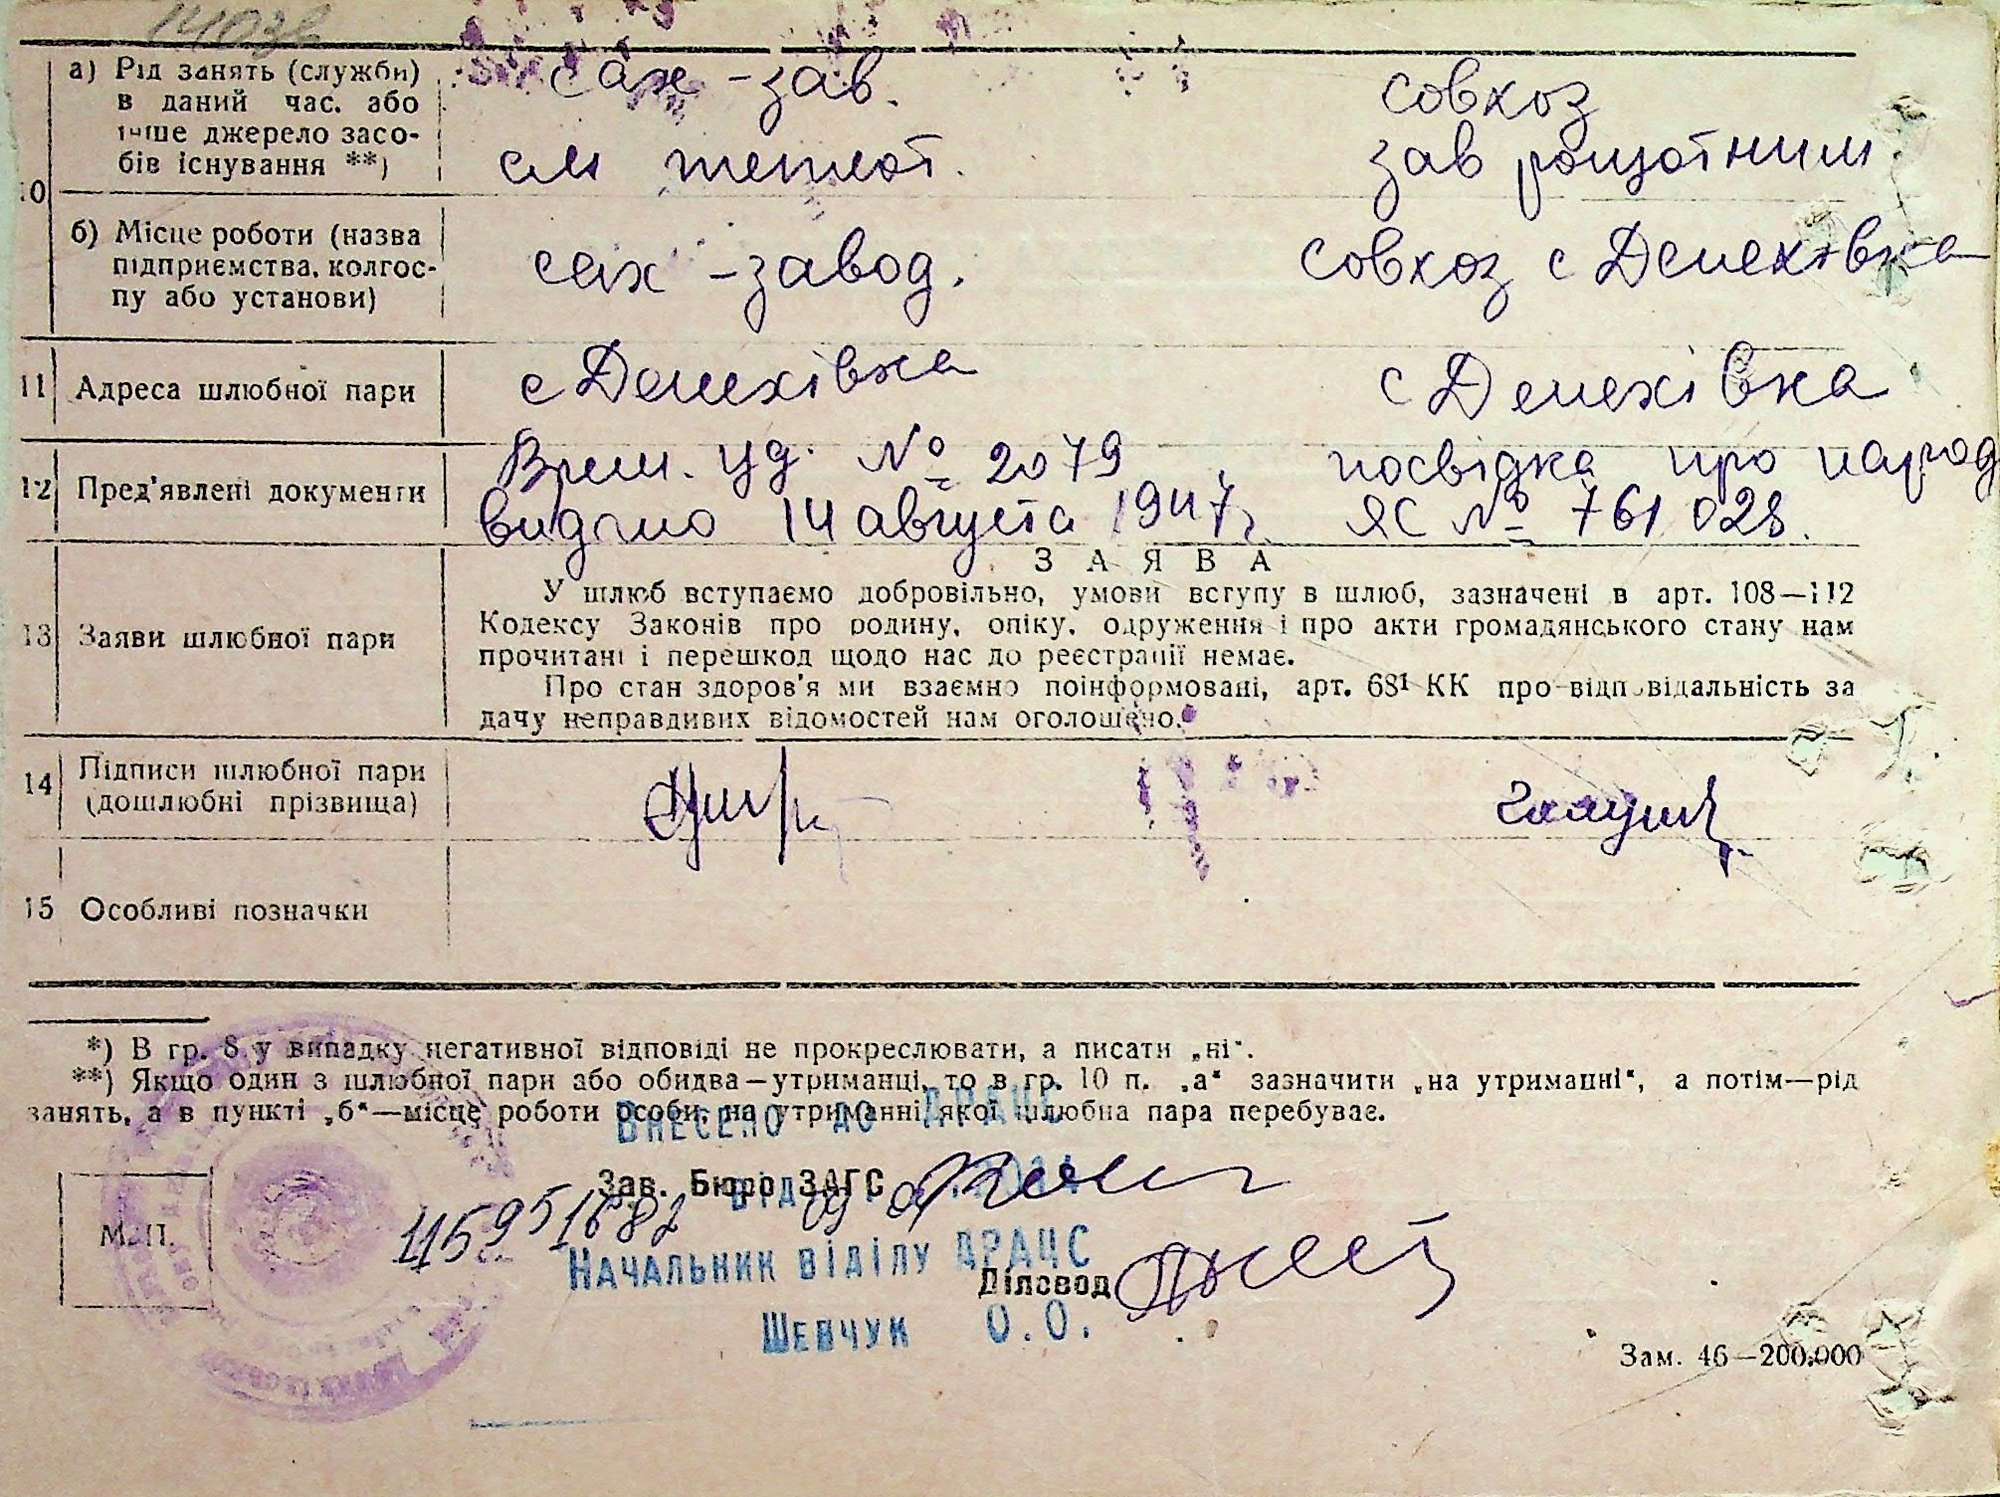 а) Рід занять (служби) в даний час. або інше джерело засобів існування **)
сах-зав.
совхоз
зав
10
б) Місце роботи (назва підприємства, колгоспу або установи)
сах-завод.
совхоз с Денехівка
11 Адреса шлюбної пари
с Денехівка
с Денехівка
12 Пред'явлені документи
Врем. уд. № 2079
видано 14 августа 1947 г.
посвідка про народ
ЯС № 761028.
З А Я В А
13 Заяви шлюбної пари
У шлюб вступаємо добровільно, умови вступу в шлюб, зазначені в арт. 108—112
Кодексу Законів про родину, опіку, одруження і про акти громадянського стану нам
прочитані і перешкод щодо нас до реєстрації немає.
Про стан здоров'я ми взаємно поінформовані, арт. 68¹ КК про відповідальність за
дачу неправдивих відомостей нам оголошено.
14 Підписи шлюбної пари
(дошлюбні прізвища)
15 Особливі позначки
*) В гр. 8 у випадку негативної відповіді не прокреслювати, а писати „ні“.
**) Якщо один з шлюбної пари або обидва—утриманці, то в гр. 10 п. „а“ зазначити „на утриманні“, а потім—рід
занять, а в пункті „б“—місце роботи особи, на утриманні якої шлюбна пара перебуває.
Внесено до ДРАЦС
Зав. Бюро ЗАГС
Від
М. П.
Начальник відділу ДРАЦС
Діловод
Шевчук О.О.
Зам. 46—200.000